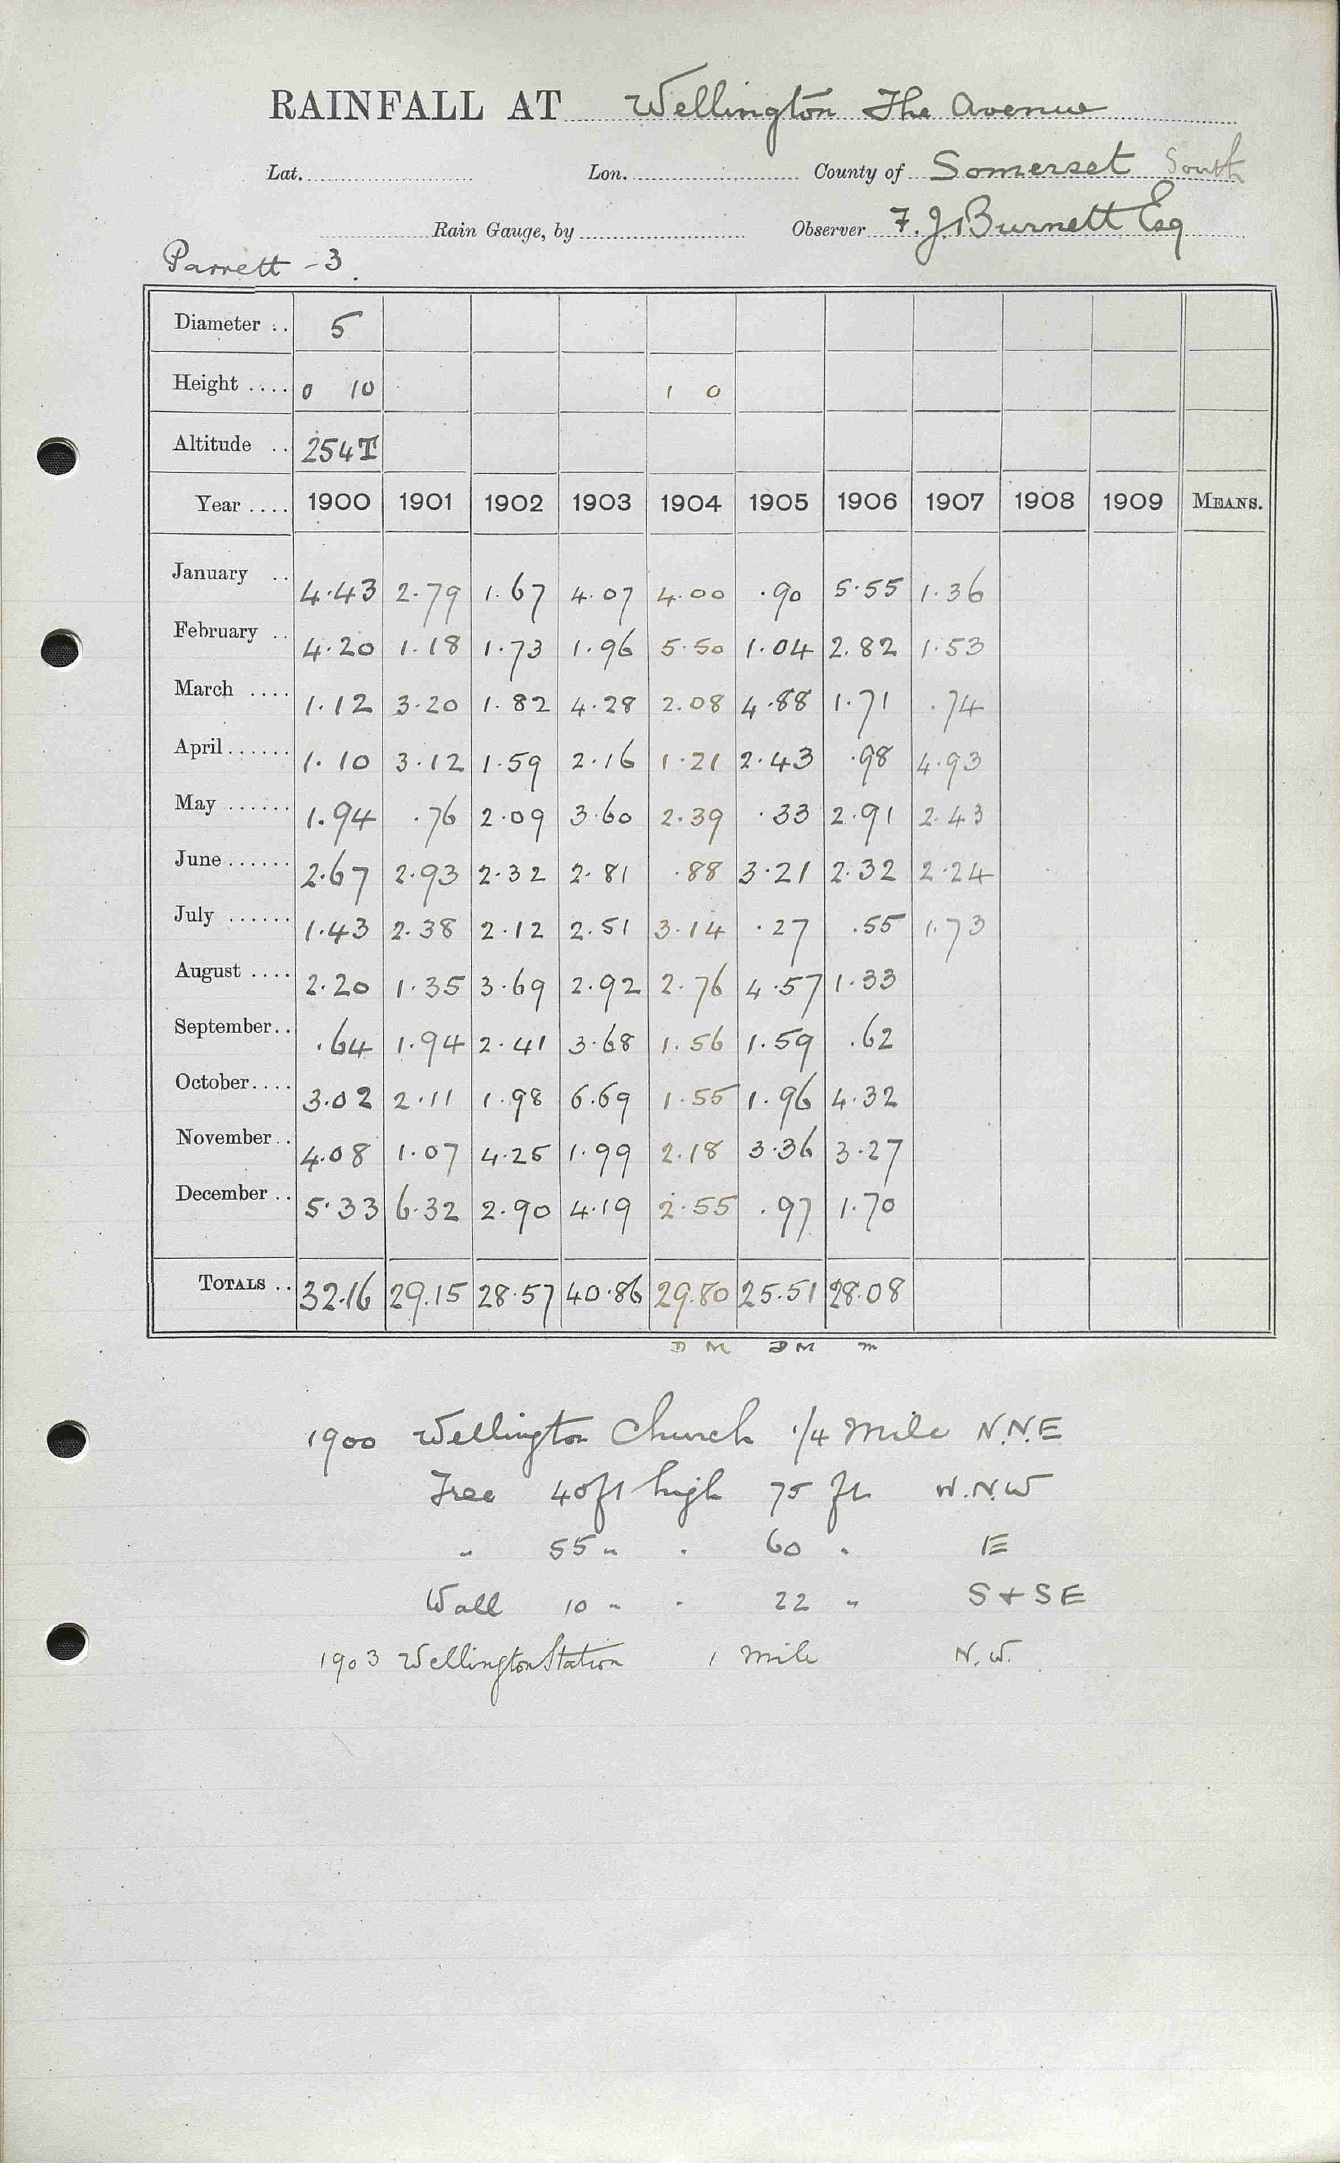 RAINFALL AT Wellington The Avenue
Lat. Lon. County of Somerset South
Rain Gauge, by Observer F. J. Burnett Esq
Parrett - 3
Diameter .. 5
Height .... 0 10 1 0
Altitude .. 254T
Year .... 1900 1901 1902 1903 1904 1905 1906 1907 1908 1909 MEANS.
January .. 4.43 2.79 1.67 4.07 4.00 .90 5.55 1.36
February .. 4.20 1.18 1.73 1.96 5.50 1.04 2.82 1.53
March .... 1.12 3.20 1.82 4.28 2.08 4.88 1.71 .74
April ...... 1.10 3.12 1.59 2.16 1.21 2.43 .98 4.93
May ...... 1.94 .76 2.09 3.60 2.39 .33 2.91 2.43
June ...... 2.67 2.93 2.32 2.81 .88 3.21 2.32 2.24
July ...... 1.43 2.38 2.12 2.51 3.14 .27 .55 1.73
August .... 2.20 1.35 3.69 2.92 2.76 4.57 1.33
September .. .64 1.94 2.41 3.68 1.56 1.59 .62
October .... 3.02 2.11 1.98 6.69 1.55 1.96 4.32
November .. 4.08 1.07 4.25 1.99 2.18 3.36 3.27
December .. 5.33 6.32 2.90 4.19 2.55 .97 1.70
TOTALS .. 32.16 29.15 28.57 40.86 29.80 25.51 28.08
D M D M m
1900 Wellington Church 1/4 Mile N.N.E
Tree 40ft high 75 ft W.N.W
" 55 " " 60 " E
Wall 10 " " 22 " S + SE
1903 Wellington Station 1 Mile N.W.